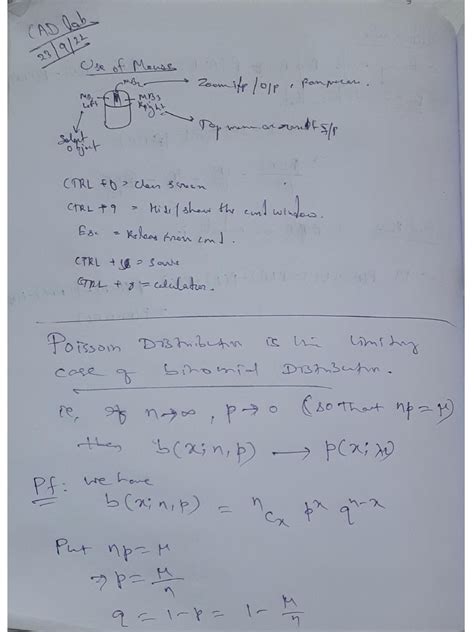 CAD lab
23/9/22
Use of Mouse
MB2
Zoom i/p / o/p, Pan
MB1
Left
MB3
Right
Select
object
CTRL + 0 = Clean Screen
CTRL + 9 = Hide/show the cmd window.
Esc = Release from cmd.
CTRL + = save
CTRL + 8 = calculator.
Poisson Distribution is the limiting
case of binomial Distribution.
ie, if n→∞, p→0 (so that np=μ)
then b(x;n,p) → p(x;μ)
Pf: we have
b(x;n,p) = nCx p^x q^n-x
Put np=μ
⇒ p=μ/n
q = 1-p = 1-μ/n